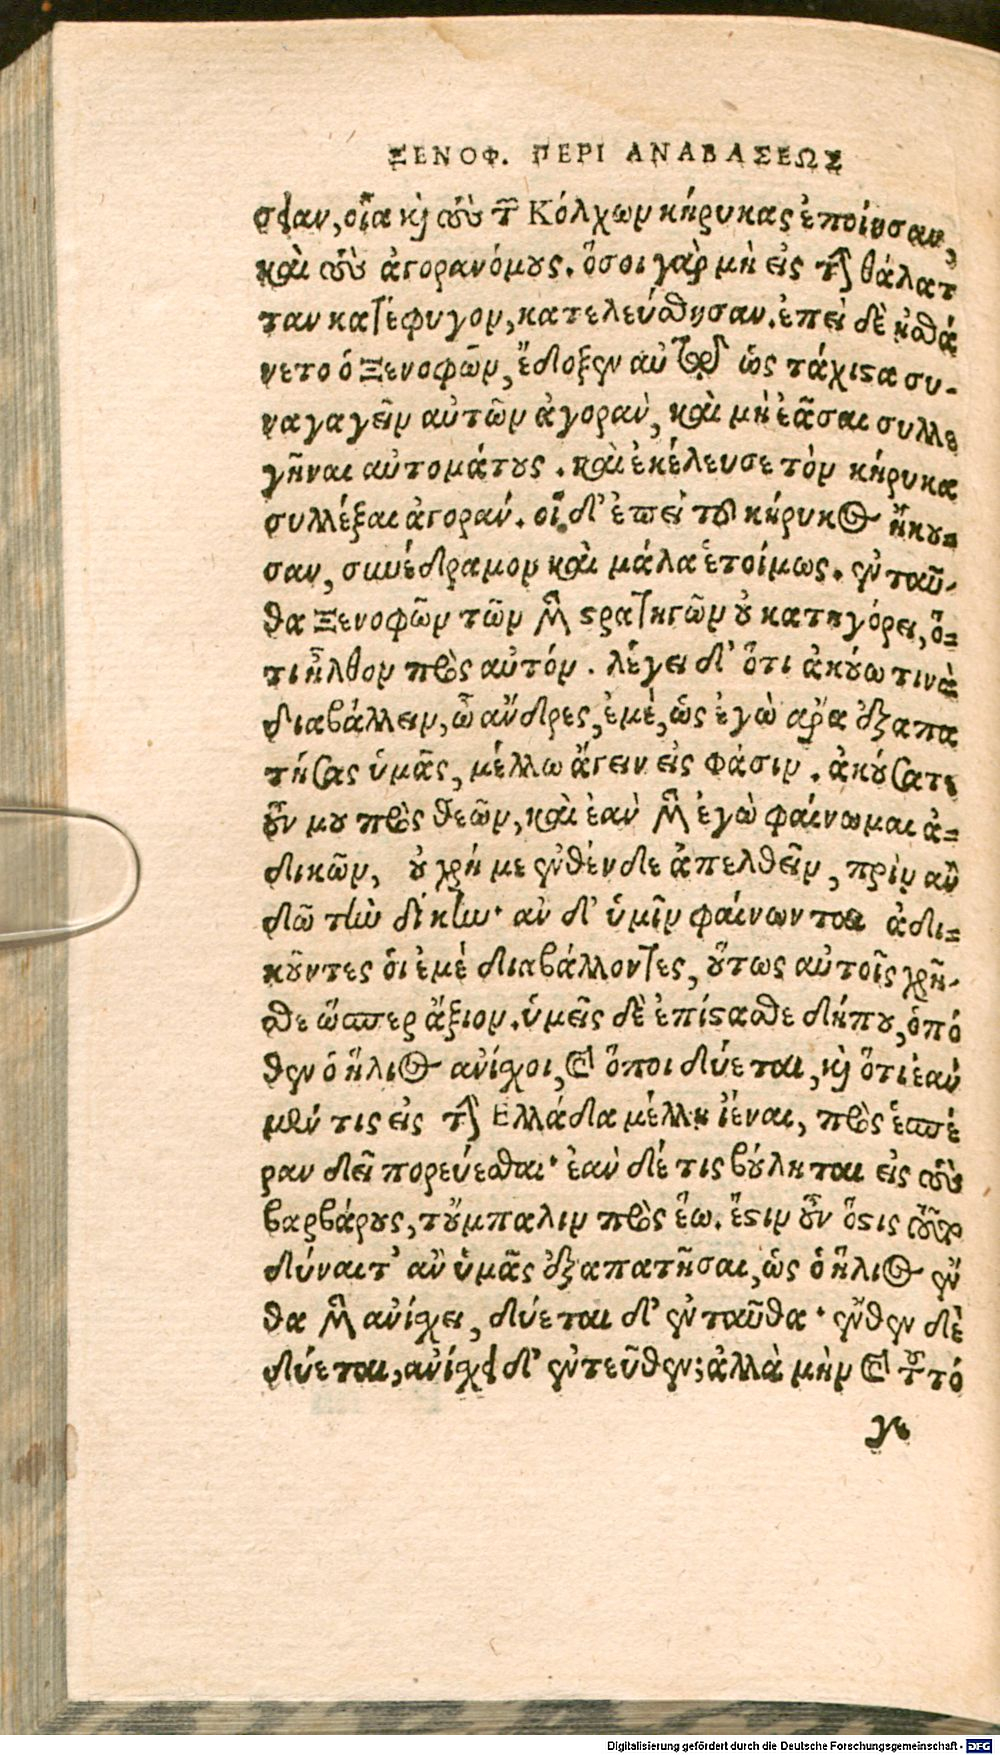 ΞΕΝΟΦ. ΠΕΡΙ ΑΝΑΒΑΣΕΩΣ
σίαν, οἷα καὶ τοὺς τῶν Κόλχων κήρυκας ἐποίησαν,
καὶ τοὺς ἀγορανόμους. ὅσοι γὰρ μὴ εἰς τὴν θάλατ
ταν κατέφυγον, κατελεύσθησαν. ἐπεὶ δὲ ᾐσθά
νετο ὁ Ξενοφῶν, ἔδοξεν αὐτῷ ὡς τάχιστα συ-
ναγαγεῖν αὐτῶν ἀγορὰν, καὶ μὴ ἐᾶσαι συλλε
γῆναι αὐτομάτους. καὶ ἐκέλευσε τὸν κήρυκα
συλλέξαι ἀγοράν. οἳ δ' ἐπεὶ τοῦ κήρυκος ἤκου=
σαν, συνέδραμον καὶ μάλα ἑτοίμως. ἐνταῦ-
θα Ξενοφῶν τῶν μὲν στρατηγῶν οὐ κατηγόρει, ὅ=
τι ἦλθον πρὸς αὐτόν. λέγει δ' ὅτι ἀκούω τινὰ
διαβάλλειν, ὦ ἄνδρες, ἐμὲ, ὡς ἐγὼ ἄρα ἐξαπα
τήσας ὑμᾶς, μέλλω ἄγειν εἰς Φάσιν. ἀκούσατε
οὖν μου πρὸς θεῶν, καὶ ἐὰν μὲν ἐγὼ φαίνωμαι ἀ=
δικῶν, οὐ χρή με ἐνθένδε ἀπελθεῖν, πρὶν ἂν
δῶ τὴν δίκην· ἂν δ' ὑμῖν φαίνωνται ἀδι=
κοῦντες οἱ ἐμὲ διαβάλλοντες, οὕτως αὐτοῖς χρῆ-
σθε ὥσπερ ἄξιον. ὑμεῖς δὲ ἐπίστασθε δήπου, ὁπό
θεν ὁ ἥλιος ἀνίσχοι, καὶ ὅποι δύεται, καὶ ὅτι ἐὰν
μέν τις εἰς τὴν Ἑλλάδα μέλλῃ ἰέναι, πρὸς ἑσπέ
ραν δεῖ πορεύεσθαι· ἐὰν δέ τις βούληται εἰς τοὺς
βαρβάρους, τοὔμπαλιν πρὸς ἕω. ἔστιν οὖν ὅστις τοῦτο
δύναιτ' ἂν ὑμᾶς ἐξαπατῆσαι, ὡς ὁ ἥλιος ἔν
θα μὲν ἀνίσχει, δύεται δ' ἐνταῦθα· ἔνθεν δὲ
δύεται, ἀνίσχει δ' ἐντεῦθεν; ἀλλὰ μὴν καὶ τοῦτό
γε
Digitalisierung gefördert durch die Deutsche Forschungsgemeinschaft - DFG